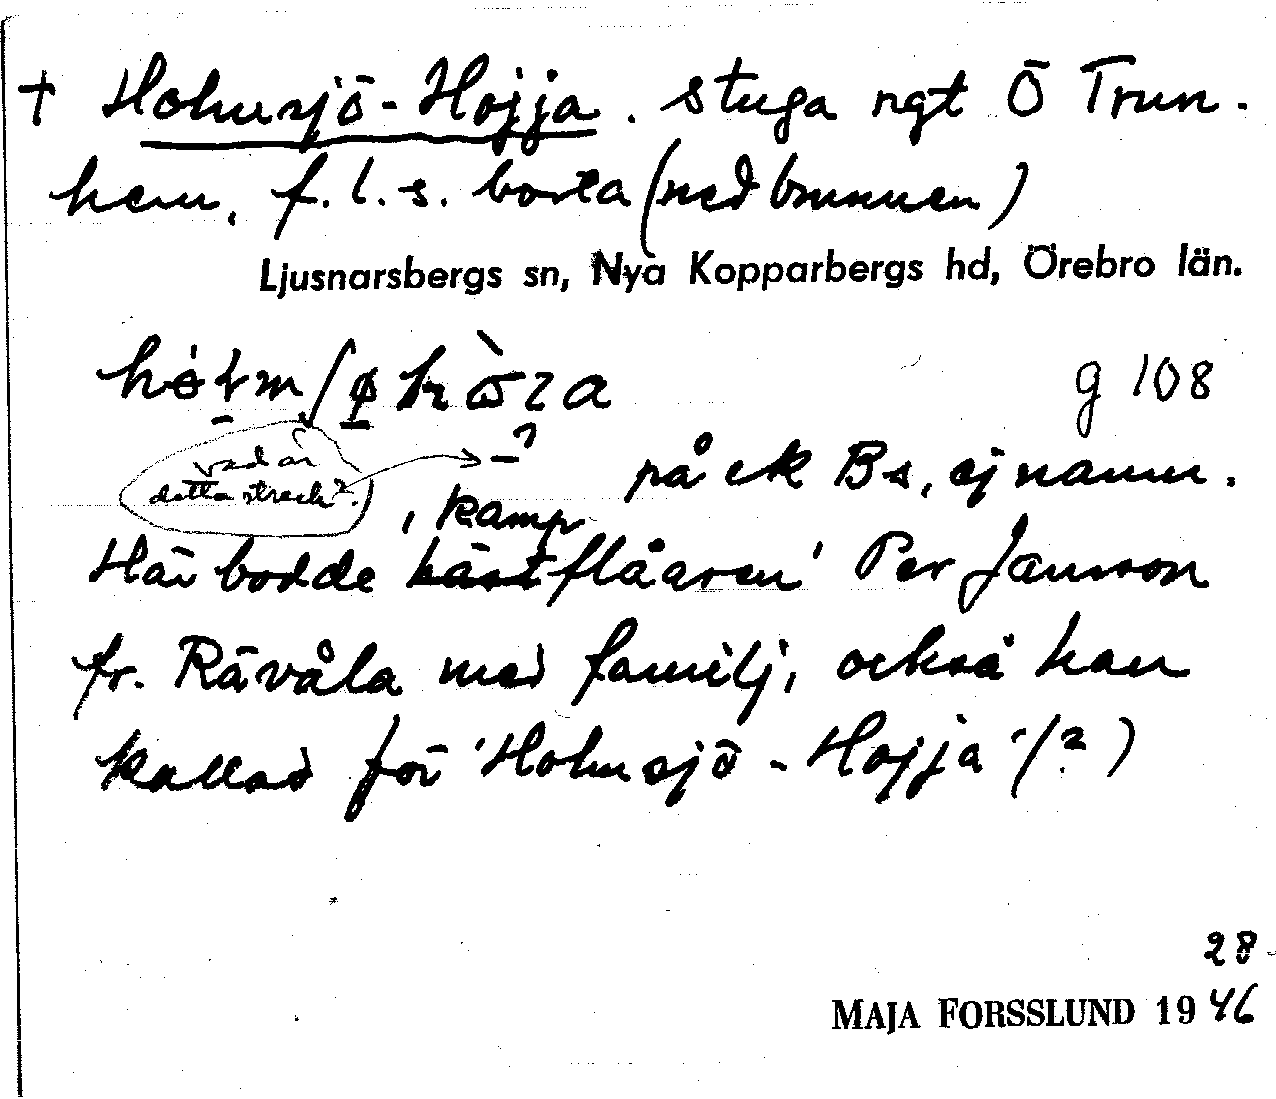 † Holmsjö-Hojja. stuga ngt Ö Trun-
hem, f. l. s. borta (nedbrunnen)
Ljusnarsbergs sn, Nya Kopparbergs hd, Örebro län.
g 108
vad är
detta streck?
på ek Bs, ej namn.
, kamp
Här bodde häst flåaren' Per Jansson
fr. Rävåla med familj, också han
kallad för 'Holmsjö-Hojja' (?)
28
MAJA FORSSLUND 1946